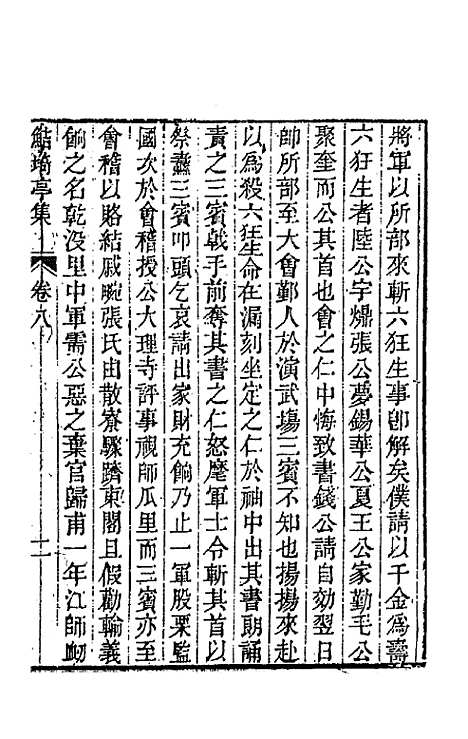 將軍以所部來斬六狂生事卽解矣僕請以千金為壽
六狂生者陸公宇㷿張公夢錫華公夏王公家勤毛公
聚奎而公其首也會之仁中悔致書錢公請自効翌日
帥所部至大會鄞人於演武場三賓不知也揚揚來赴
以為殺六狂生命在漏刻坐定之仁於袖中出其書朗誦
責之三賓戟手前奪其書之仁怒麾軍士令斬其首以
祭纛三賓叩頭乞哀請出家財充餉乃止一軍股栗監
國次於會稽授公大理寺評事視師瓜里而三賓亦至
會稽以賂結戚畹張氏由散寮驟躋東閣且假勸輸義
餉之名乾没里中軍需公惡之棄官歸甫一年江師衂
鮚埼亭集 卷八 十二